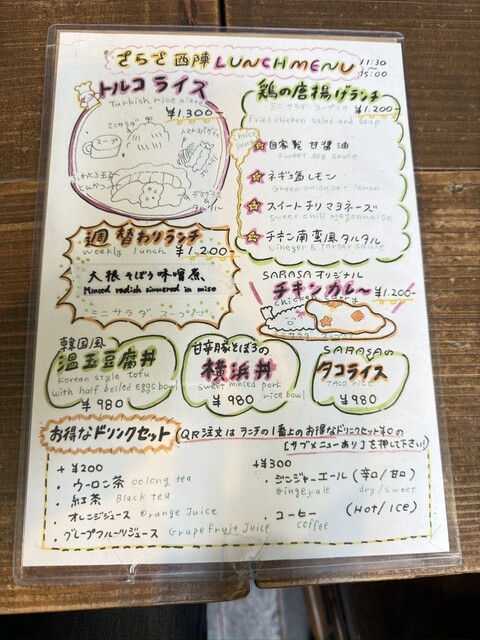 さらさ西陣 LUNCH MENU 11:30~15:00
トルコライス
Turkish rice plate
¥1,300
ミニサラダ
スープ
デミグラス
&
タルタル
鶏の唐揚げランチ
ミニサラダ スープ付 ¥1,200-
Fried chicken salad and soup
choice
自家製 甘醤油
sweet soy sauce
ネギ塩レモン
Green onion salt lemon
スイートチリマヨネーズ
sweet chili mayonnaise
チキン南蛮風タルタル
Vineger & tartar sauce
週替わりランチ
weekly lunch ¥1,200-
大根そぼろ味噌煮、
Minced radish simmered in miso
ミニサラダ スープ付
SARASA オリジナル
チキンカレー ¥1,200-
chicken curry
韓国風
温玉豆腐丼
Korean style tofu
with half boiled eggs bowl
¥980
甘辛豚そぼろの
横浜丼
sweet minced pork
rice bowl
¥980
SARASAの
タコライス
TACO RICE
¥980
お得なドリンクセット
QR注文はランチの1番上のお得なドリンクセット¥0の
[サブメニューあり]を押して下さい!
+¥200
・ウーロン茶 oolong tea
・紅茶 Black tea
・オレンジジュース Orange Juice
・グレープフルーツジュース Grapefruit Juice
+¥300
・ジンジャーエール (辛口/甘口)
Gingeyale dry/sweet
・コーヒー (Hot/Ice)
coffee